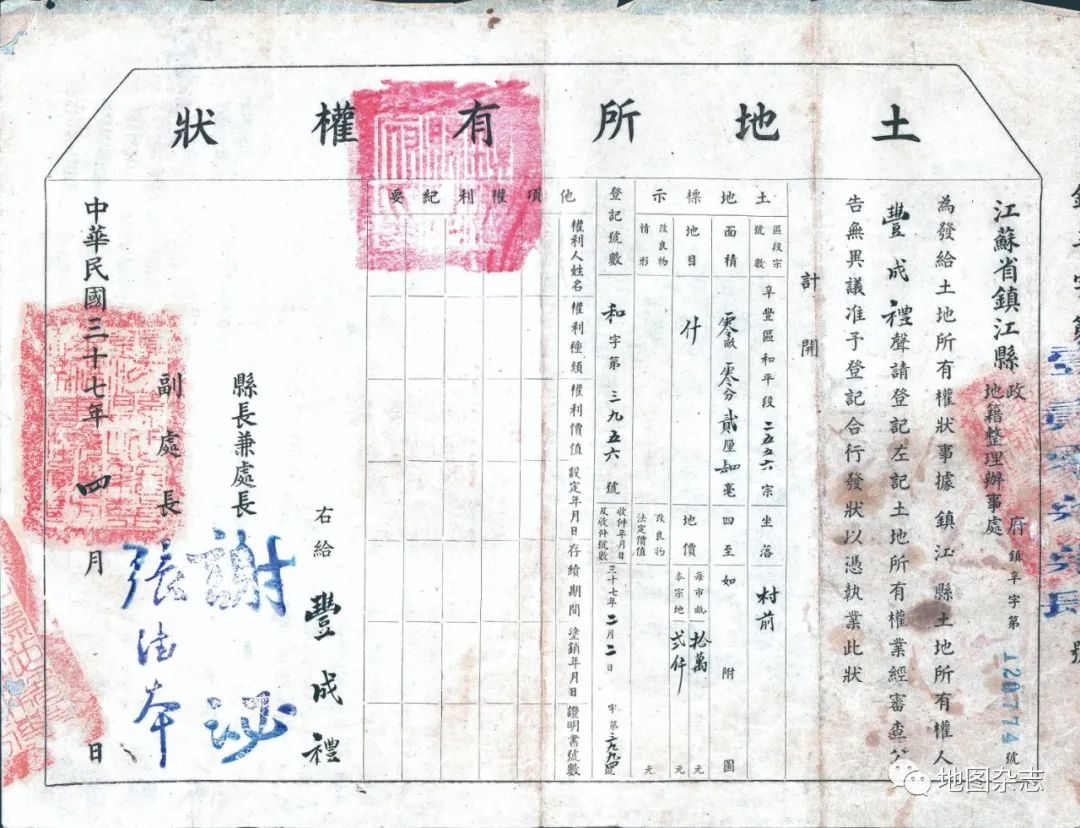 土地所有權狀
江蘇省鎮江縣政府地籍整理辦事處
鎮辛字第120774號
為發給土地所有權狀事據鎮江縣土地所有權人
豐成禮聲請登記左記土地所有權業經審查公
告無異議准予登記合行發狀以憑執業此狀
計開
土地標示
區段宗號數
辛豐區和平段二五五六宗
坐落
村前
面積
零畝零分貳厘肆毫
四至如附圖
地目
什
地價
每市畝拾萬元
本宗地弍仟元
改良物情形
改良物法定價值
元
登記號數
和字第三九五六號
收件年月日及收件號數
三十七年二月二日
字第三九九四號
他項權利紀要
權利人姓名
權利種類
權利價值
設定年月日
存續期間
塗銷年月日
證明書號數
右給豐成禮
縣長兼處長謝泌
副處長張德本
中華民國三十七年四月日
地图杂志